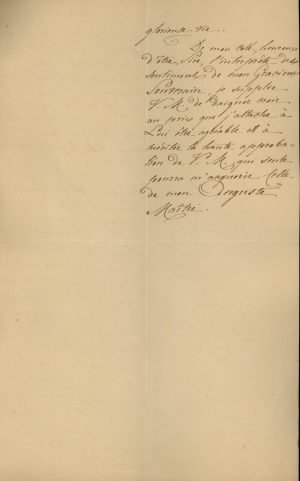 glorieuse vie.
De mon coté, heureux
d'être, Sire, l'interprète des
sentiments de mon Gracieux
Souverain, je supplie
V. M. de daigner croire
au prix que j'attache à
Lui être agréable et à
mériter la haute approba-
tion de V. M. qui seule
pourra m'acquérir celle
de mon Auguste
Maître.